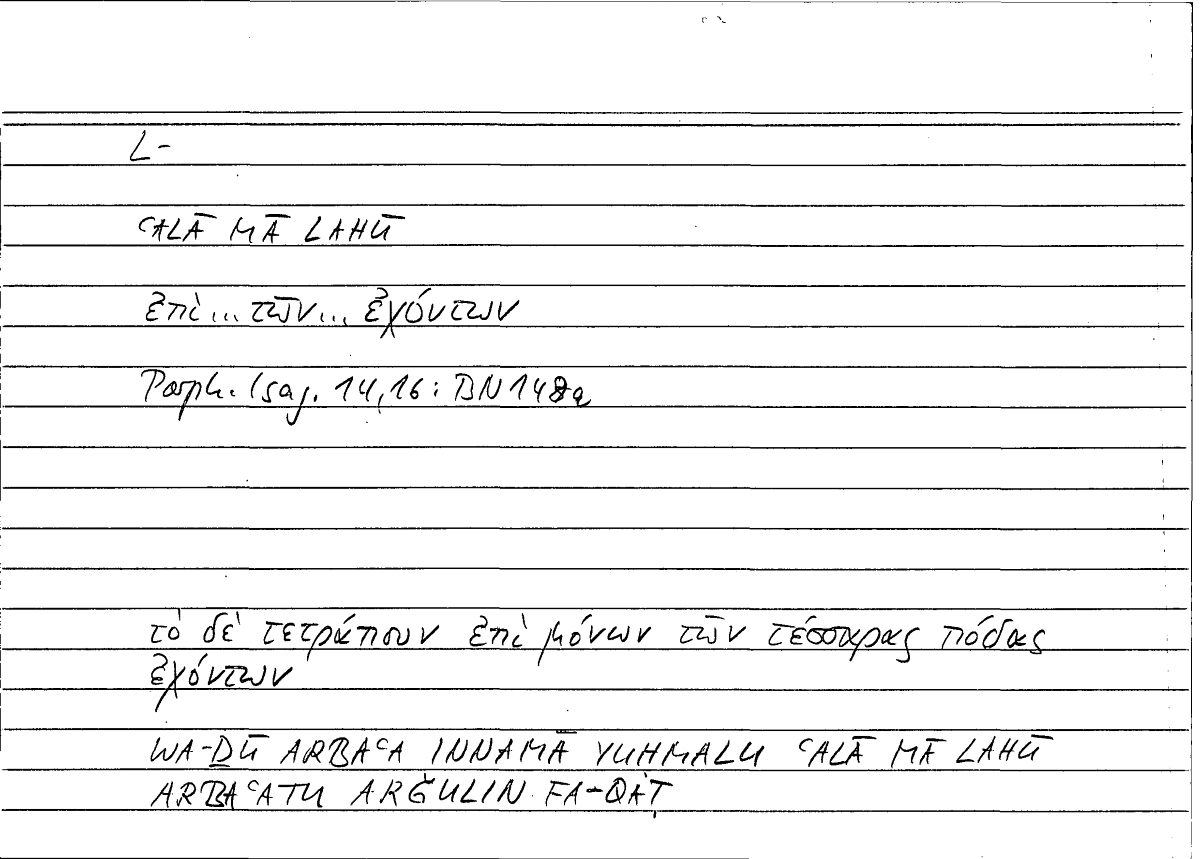 L-
ʿALĀ MĀ LAHŪ
ἐπὶ... τῶν... ἐχόντων
Porph. Isag. 14,16: BN 148a
τὸ δὲ τετράπουν ἐπὶ μόνων τῶν τέσσαρας πόδας
ἐχόντων
WA-ḎŪ ARBAʿA INNAMĀ YUHMALU ʿALĀ MĀ LAHŪ
ARBAʿATU ARĞULIN FA-QAṬ